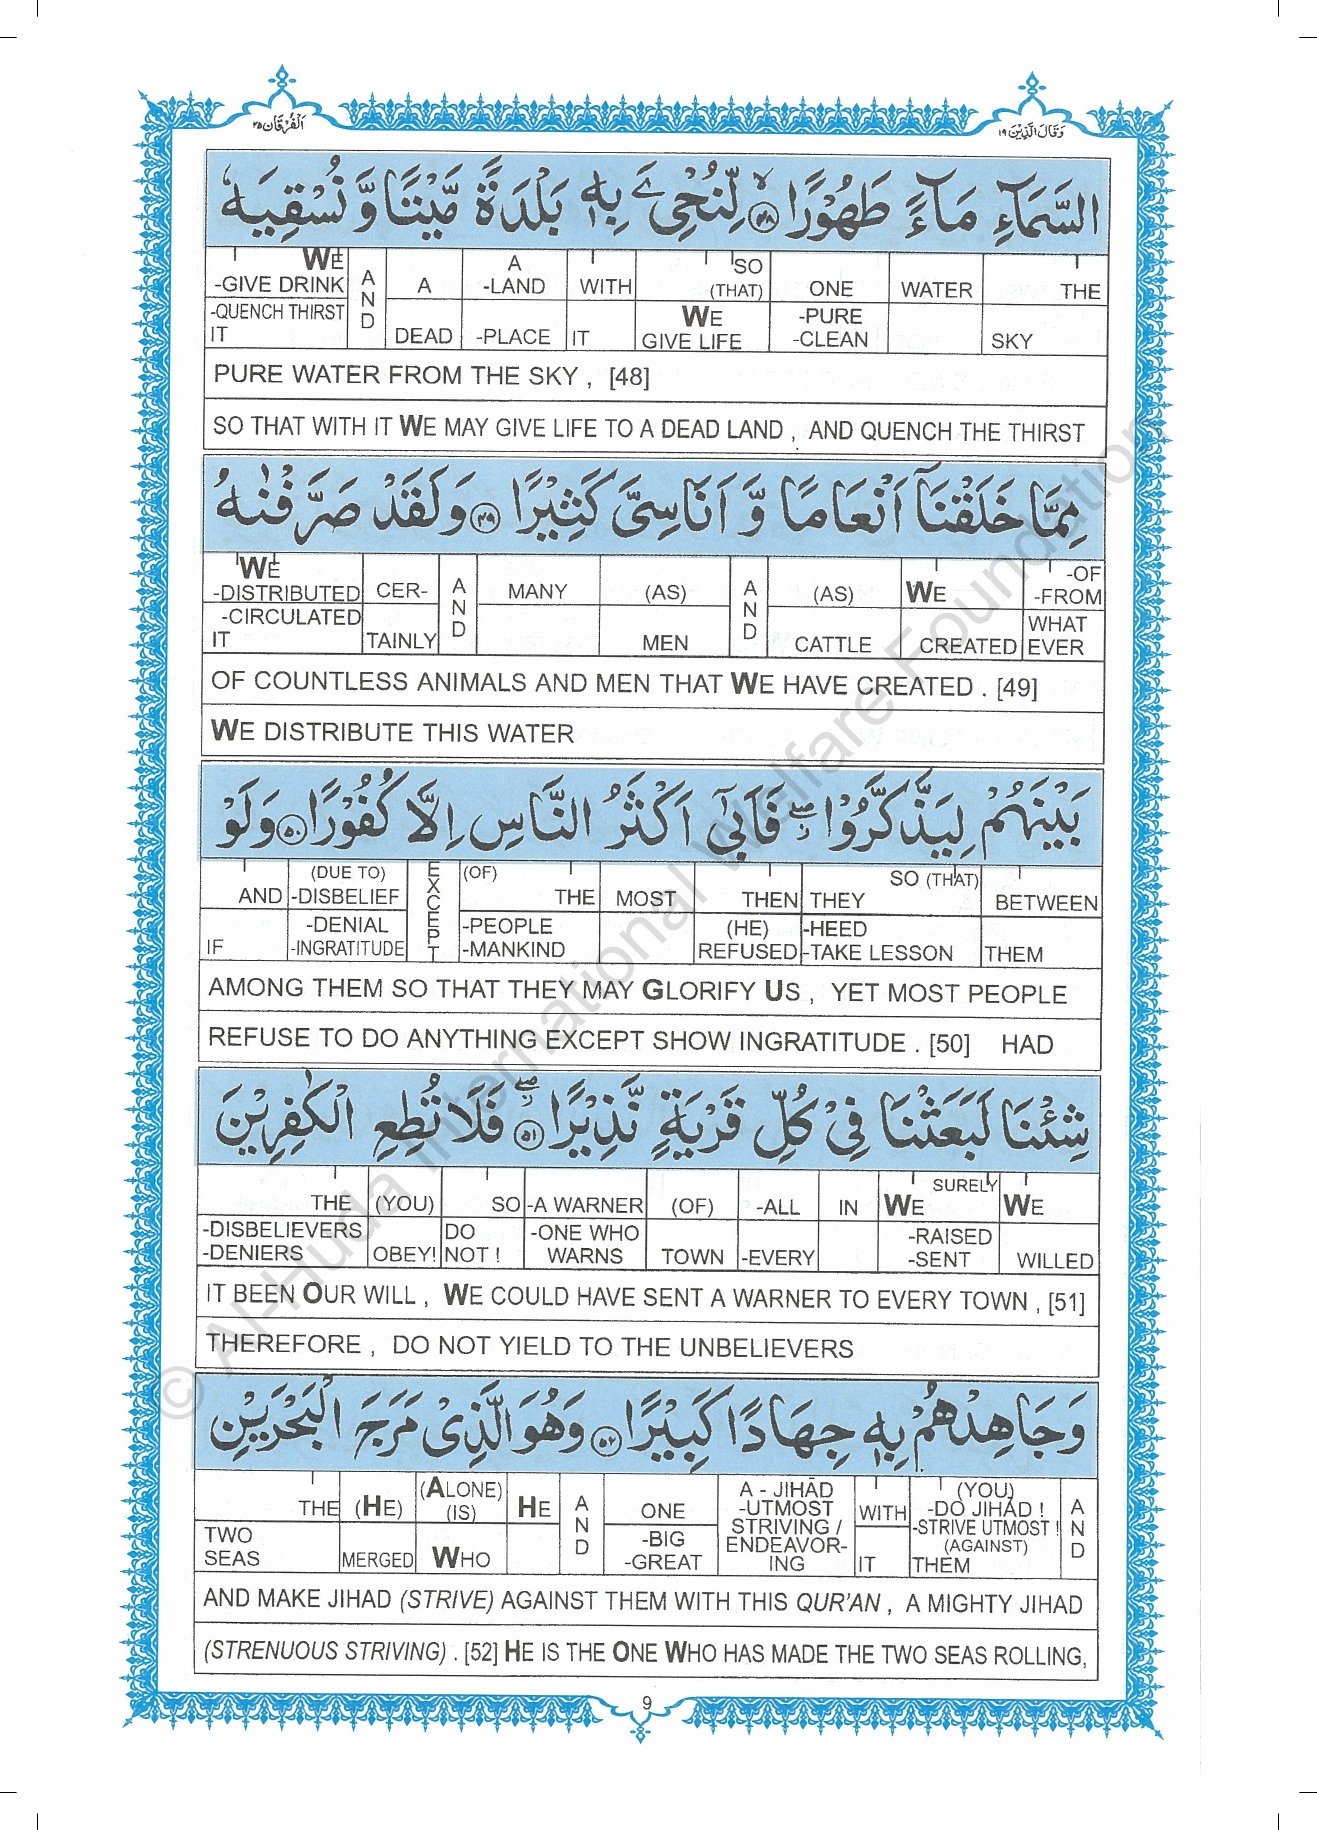 اَلْفُرْقَان ٢٥
وَقَالَ الَّذِيْنَ ١٩
السَّمَآءِ مَآءً طَهُوْرًا ۙ‏﴿٤٨﴾ لِّنُحْیِۦَ بِهٖ بَلْدَةً مَّيْتًا وَّ نُسْقِيَهٗ
WE -GIVE DRINK AND A A -LAND WITH SO (THAT) ONE WATER THE
-QUENCH THIRST IT DEAD -PLACE IT WE GIVE LIFE -PURE -CLEAN SKY
PURE WATER FROM THE SKY , [48]
SO THAT WITH IT WE MAY GIVE LIFE TO A DEAD LAND , AND QUENCH THE THIRST
مِمَّا خَلَقْنَآ اَنْعَامًا وَّ اَنَاسِیَّ كَثِيْرًا ﴿٤٩﴾ وَلَقَدْ صَرَّفْنٰهُ
WE -DISTRIBUTED CER- AND MANY (AS) AND (AS) WE -OF -FROM
-CIRCULATED IT TAINLY MEN CATTLE CREATED WHAT EVER
OF COUNTLESS ANIMALS AND MEN THAT WE HAVE CREATED . [49]
WE DISTRIBUTE THIS WATER
بَيْنَهُمْ لِيَذَّكَّرُوْا ۖ فَاَبٰٓى اَكْثَرُ النَّاسِ اِلَّا كُفُوْرًا ﴿٥٠﴾ وَلَوْ
AND (DUE TO) -DISBELIEF EXCEPT (OF) THE MOST THEN SO (THAT) THEY BETWEEN
IF -DENIAL -INGRATITUDE -PEOPLE -MANKIND (HE) REFUSED -HEED -TAKE LESSON THEM
AMONG THEM SO THAT THEY MAY GLORIFY US , YET MOST PEOPLE
REFUSE TO DO ANYTHING EXCEPT SHOW INGRATITUDE . [50] HAD
شِئْنَا لَبَعَثْنَا فِیْ كُلِّ قَرْيَةٍ نَّذِيْرًا ۖ﴿٥١﴾ فَلَا تُطِعِ الْكٰفِرِيْنَ
THE (YOU) SO -A WARNER (OF) -ALL IN SURELY WE WE
-DISBELIEVERS -DENIERS OBEY! DO NOT ! -ONE WHO WARNS TOWN -EVERY -RAISED -SENT WILLED
IT BEEN OUR WILL , WE COULD HAVE SENT A WARNER TO EVERY TOWN , [51]
THEREFORE , DO NOT YIELD TO THE UNBELIEVERS
وَجَاهِدْهُمْ بِهٖ جِهَادًا كَبِيْرًا ﴿٥٢﴾ وَهُوَ الَّذِیْ مَرَجَ الْبَحْرَيْنِ
THE (HE) (ALONE) (IS) HE AND ONE A - JIHĀD -UTMOST WITH (YOU) -DO JIHĀD ! AND
TWO SEAS MERGED WHO -BIG -GREAT STRIVING / ENDEAVOR-ING IT -STRIVE UTMOST ! (AGAINST) THEM
AND MAKE JIHAD (STRIVE) AGAINST THEM WITH THIS QUR'AN , A MIGHTY JIHAD
(STRENUOUS STRIVING) . [52] HE IS THE ONE WHO HAS MADE THE TWO SEAS ROLLING,
9
© Al-Huda International Welfare Foundation